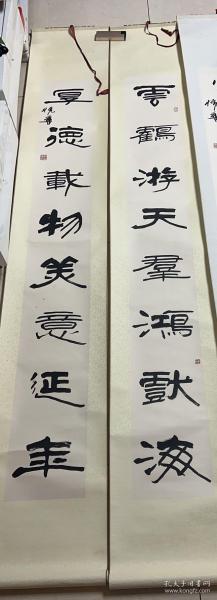 雲鶴游天羣鴻戲海
厚德載物美意延年
孔夫子旧书网